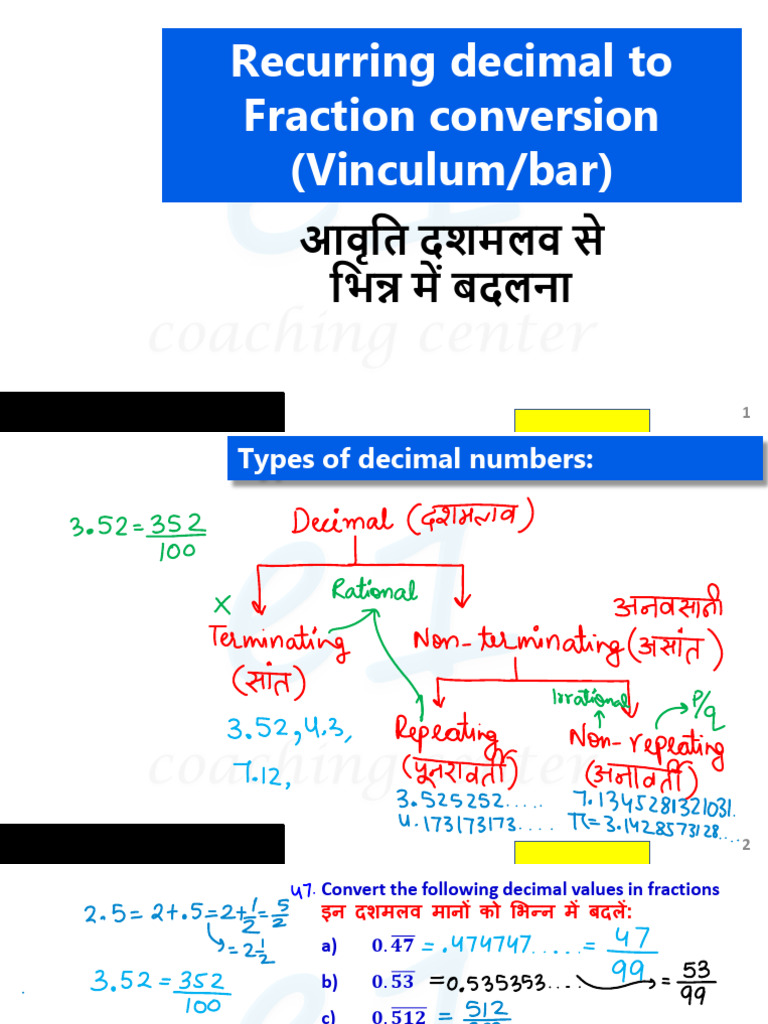 Recurring decimal to
Fraction conversion
(Vinculum/bar)
आवृति दशमलव से
भिन्न में बदलना
coaching center
1
Types of decimal numbers:
3.52 = 352/100
Decimal (दशमलव)
Rational
x
अनवसानी
Terminating
(सांत)
Non-terminating (असांत)
Irrational
P/q
3.52, 4.3,
7.12,
Repeating
(पूनरावर्ती)
Non-repeating
(अनावर्ती)
coaching center
3.525252.....
4.173173173....
7.1345281321031.
π = 3.1428573128....
2
47. Convert the following decimal values in fractions
इन दशमलव मानों को भिन्न में बदलें:
2.5 = 2+.5 = 2+1/2 = 5/2
= 2 1/2
3.52 = 352/100
a) 0.4̅7̅ = .474747..... = 47/99
b) 0.5̅3̅ = 0.535353.... = 53/99
c) 0.5̅1̅2̅ = 512